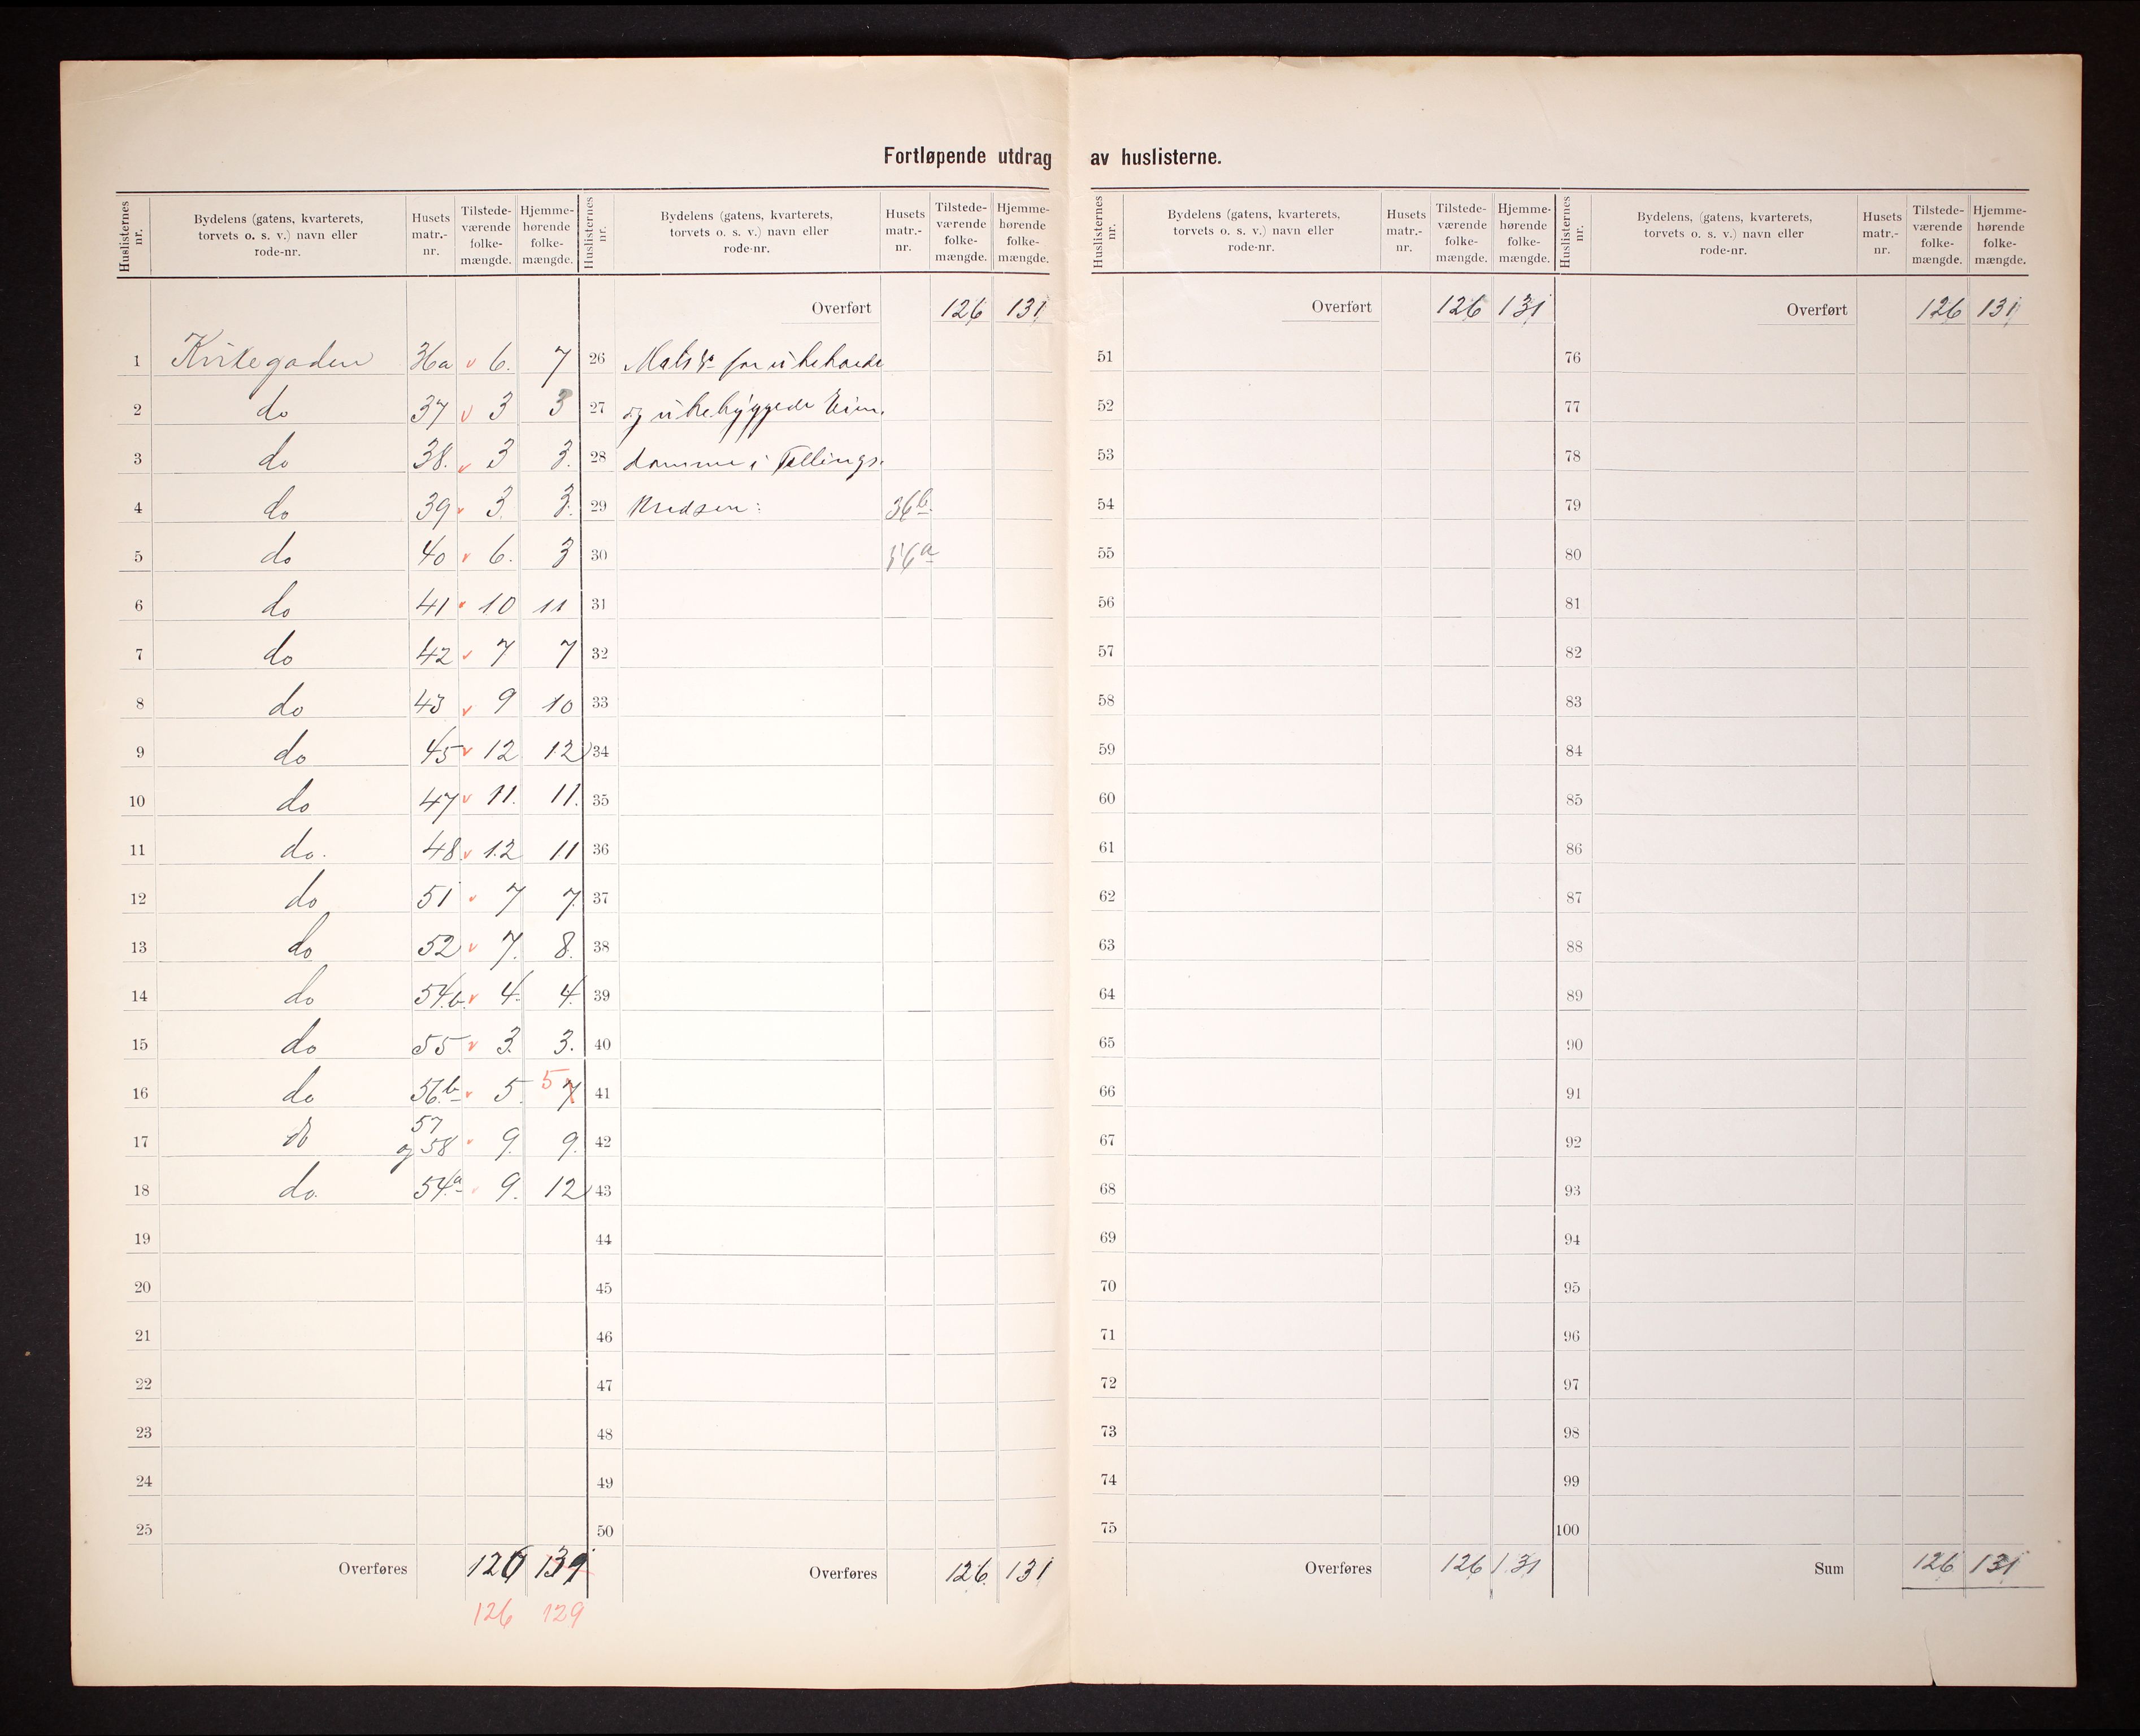 Fortløpende utdrag av huslisterne.
Huslisternes nr.
Bydelens (gatens, kvarterets, torvets o. s. v.) navn eller rode-nr.
Husets matr.-nr.
Tilstede-værende folke-mængde.
Hjemme-hørende folke-mængde.
1 Kirkegaden 36a v 6. 7
2 do 37 v 3 3
3 do 38. v 3 3.
4 do 39 v 3. 3.
5 do 40 v 6. 3
6 do 41 v 10 11
7 do 42 v 7 7
8 do 43 v 9 10
9 do 45 v 12 12
10 do 47 v 11. 11.
11 do. 48 v 12 11
12 do 51 v 7 7
13 do 52 v 7. 8.
14 do 54b. v 4. 4.
15 do 55 v 3. 3.
16 do 56b v 5. 5 7
17 do 57 og 58 v 9. 9.
18 do. 54a v 9. 12
19
20
21
22
23
24
25
Overføres 126 131
126 129
Huslisternes nr.
Bydelens (gatens, kvarterets, torvets o. s. v.) navn eller rode-nr.
Husets matr.-nr.
Tilstede-værende folke-mængde.
Hjemme-hørende folke-mængde.
Overført 126 131
26 for ubeboede
27 og ubebyggede Eien-
28 domme i Tællings-
29 Kredsen: 36b
30 56a
31
32
33
34
35
36
37
38
39
40
41
42
43
44
45
46
47
48
49
50
Overføres 126. 131
Huslisternes nr.
Bydelens (gatens, kvarterets, torvets o. s. v.) navn eller rode-nr.
Husets matr.-nr.
Tilstede-værende folke-mængde.
Hjemme-hørende folke-mængde.
Overført 126 131
51
52
53
54
55
56
57
58
59
60
61
62
63
64
65
66
67
68
69
70
71
72
73
74
75
Overføres 126 131
Huslisternes nr.
Bydelens, (gatens, kvarterets, torvets o. s. v.) navn eller rode-nr.
Husets matr.-nr.
Tilstede-værende folke-mængde.
Hjemme-hørende folke-mængde.
Overført 126 131
76
77
78
79
80
81
82
83
84
85
86
87
88
89
90
91
92
93
94
95
96
97
98
99
100
Sum 126 131